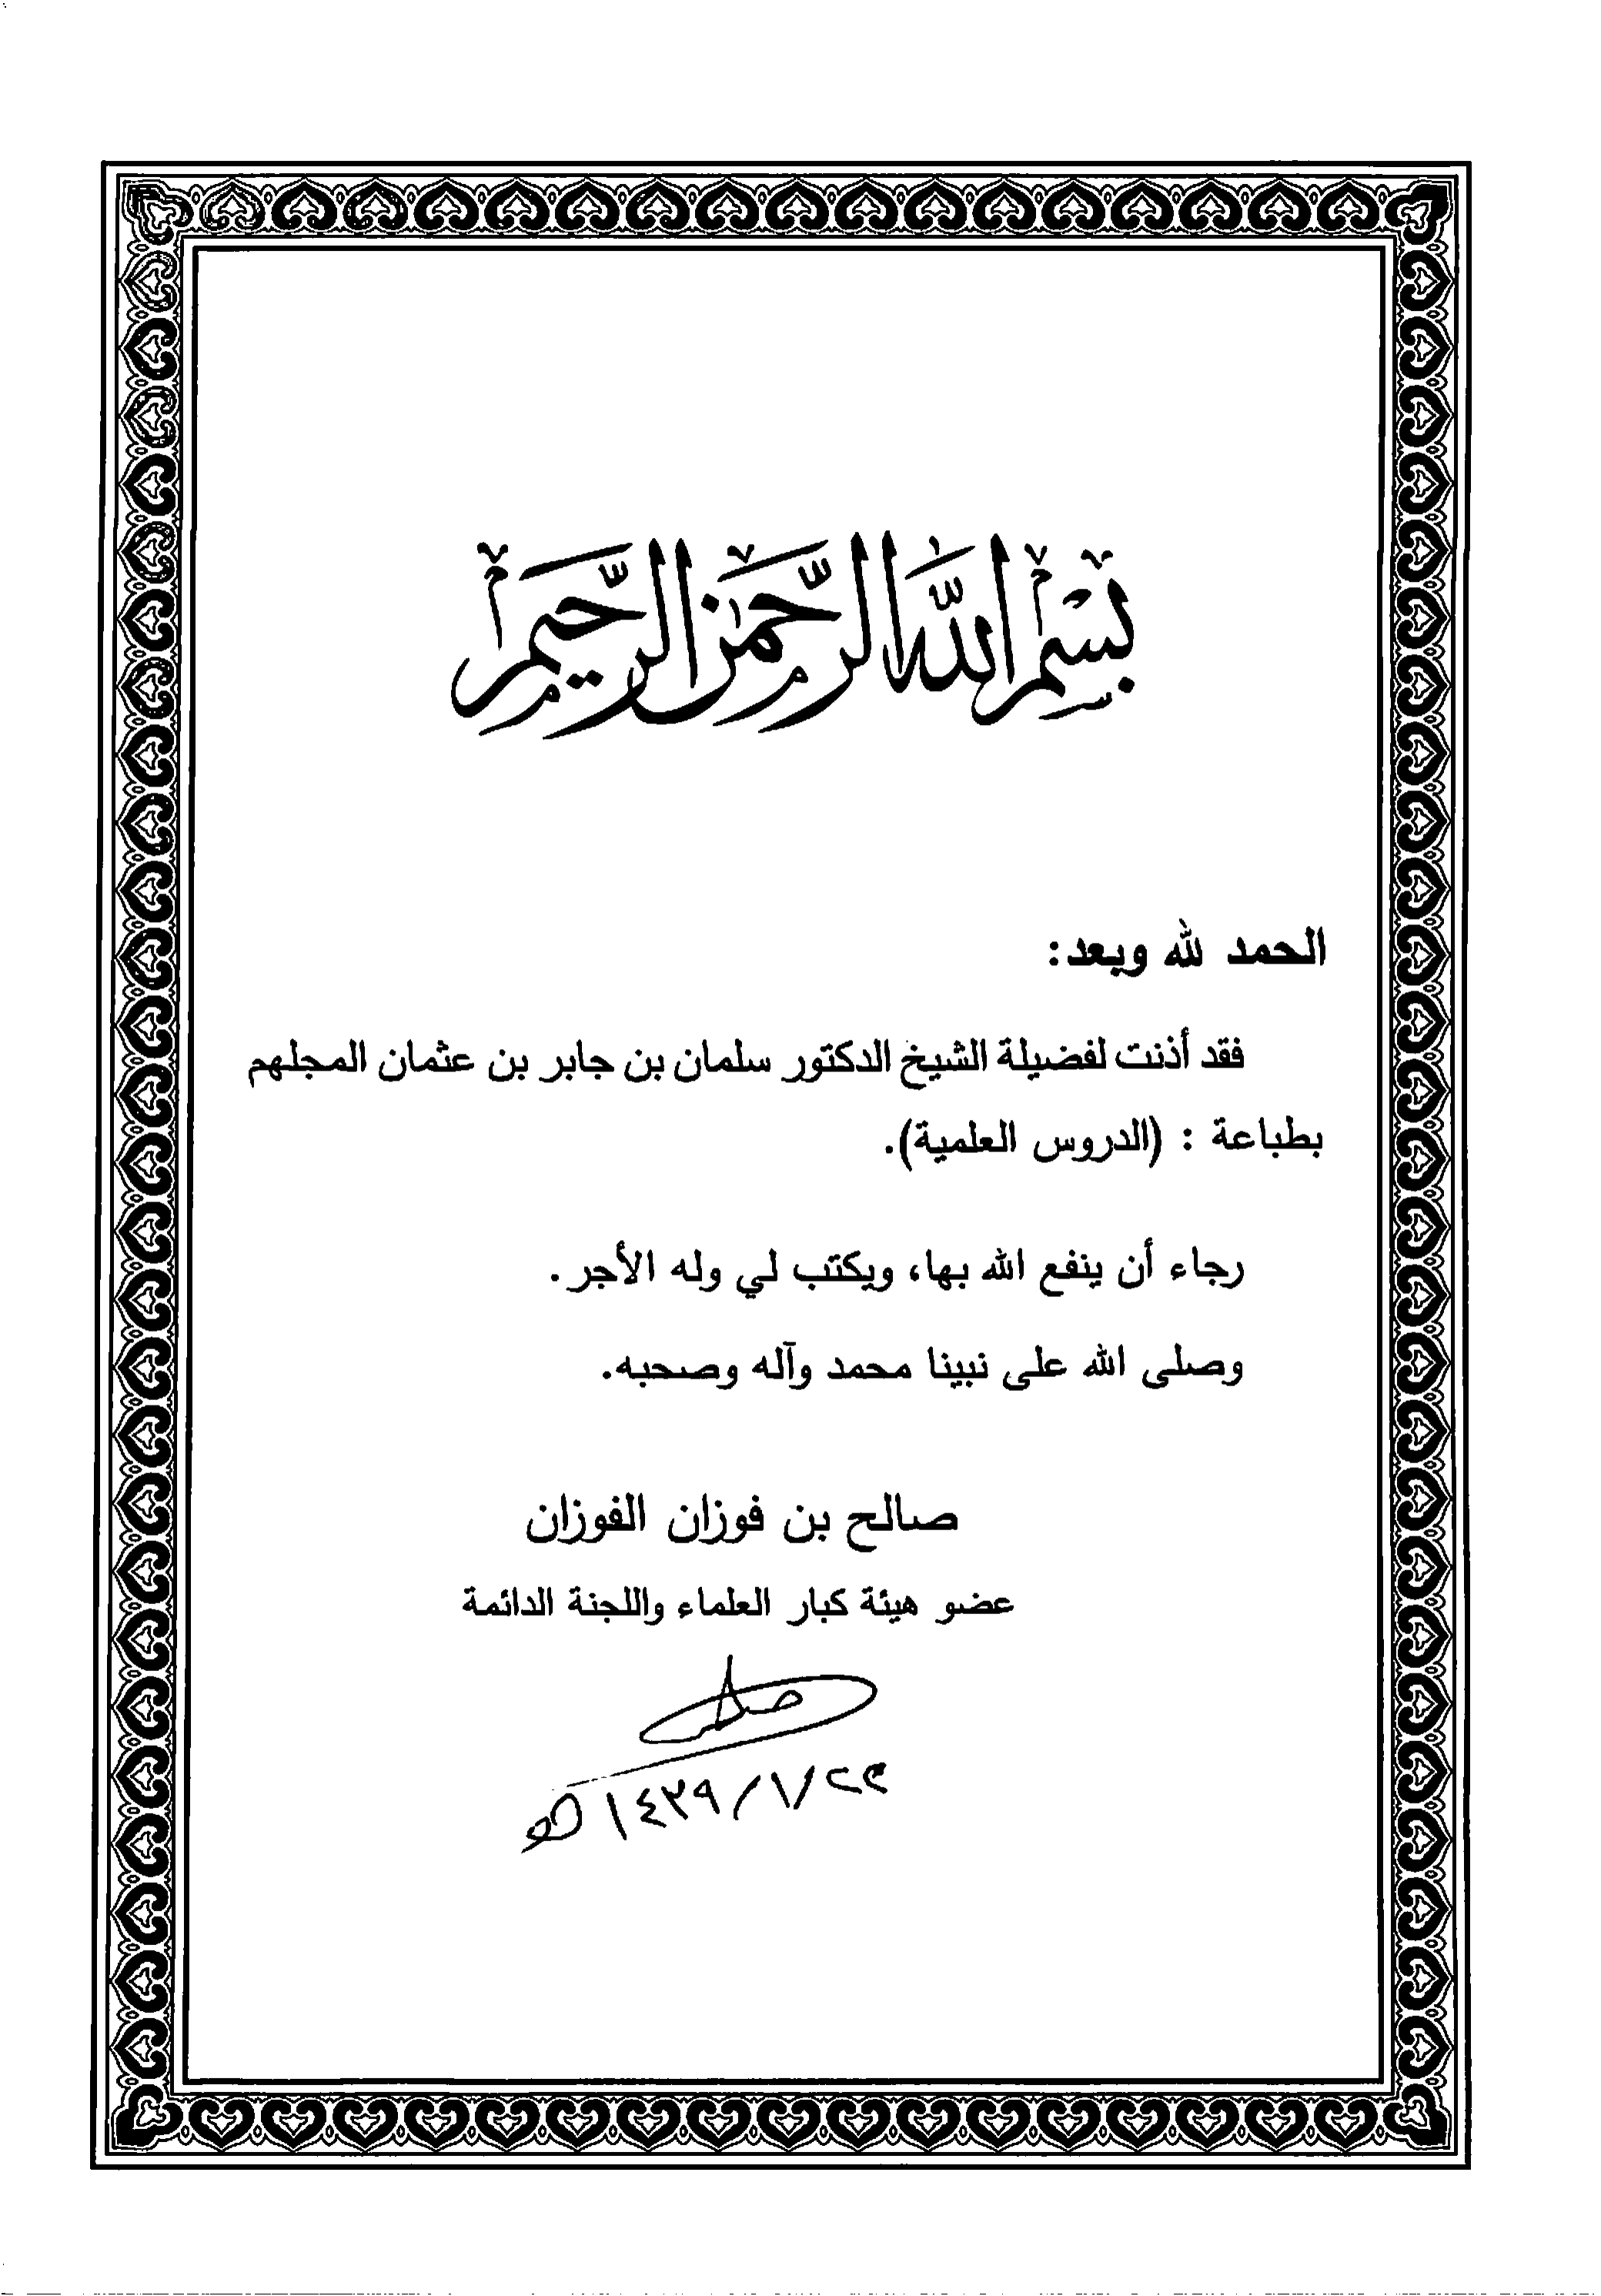 بسم الله الرحمن الرحيم
الحمد لله وبعد:
فقد أذنت لفضيلة الشيخ الدكتور سلمان بن جابر بن عثمان المجلهم
بطباعة : (الدروس العلمية).
رجاء أن ينفع الله بها، ويكتب لي وله الأجر.
وصلى الله على نبينا محمد وآله وصحبه.
صالح بن فوزان الفوزان
عضو هيئة كبار العلماء واللجنة الدائمة